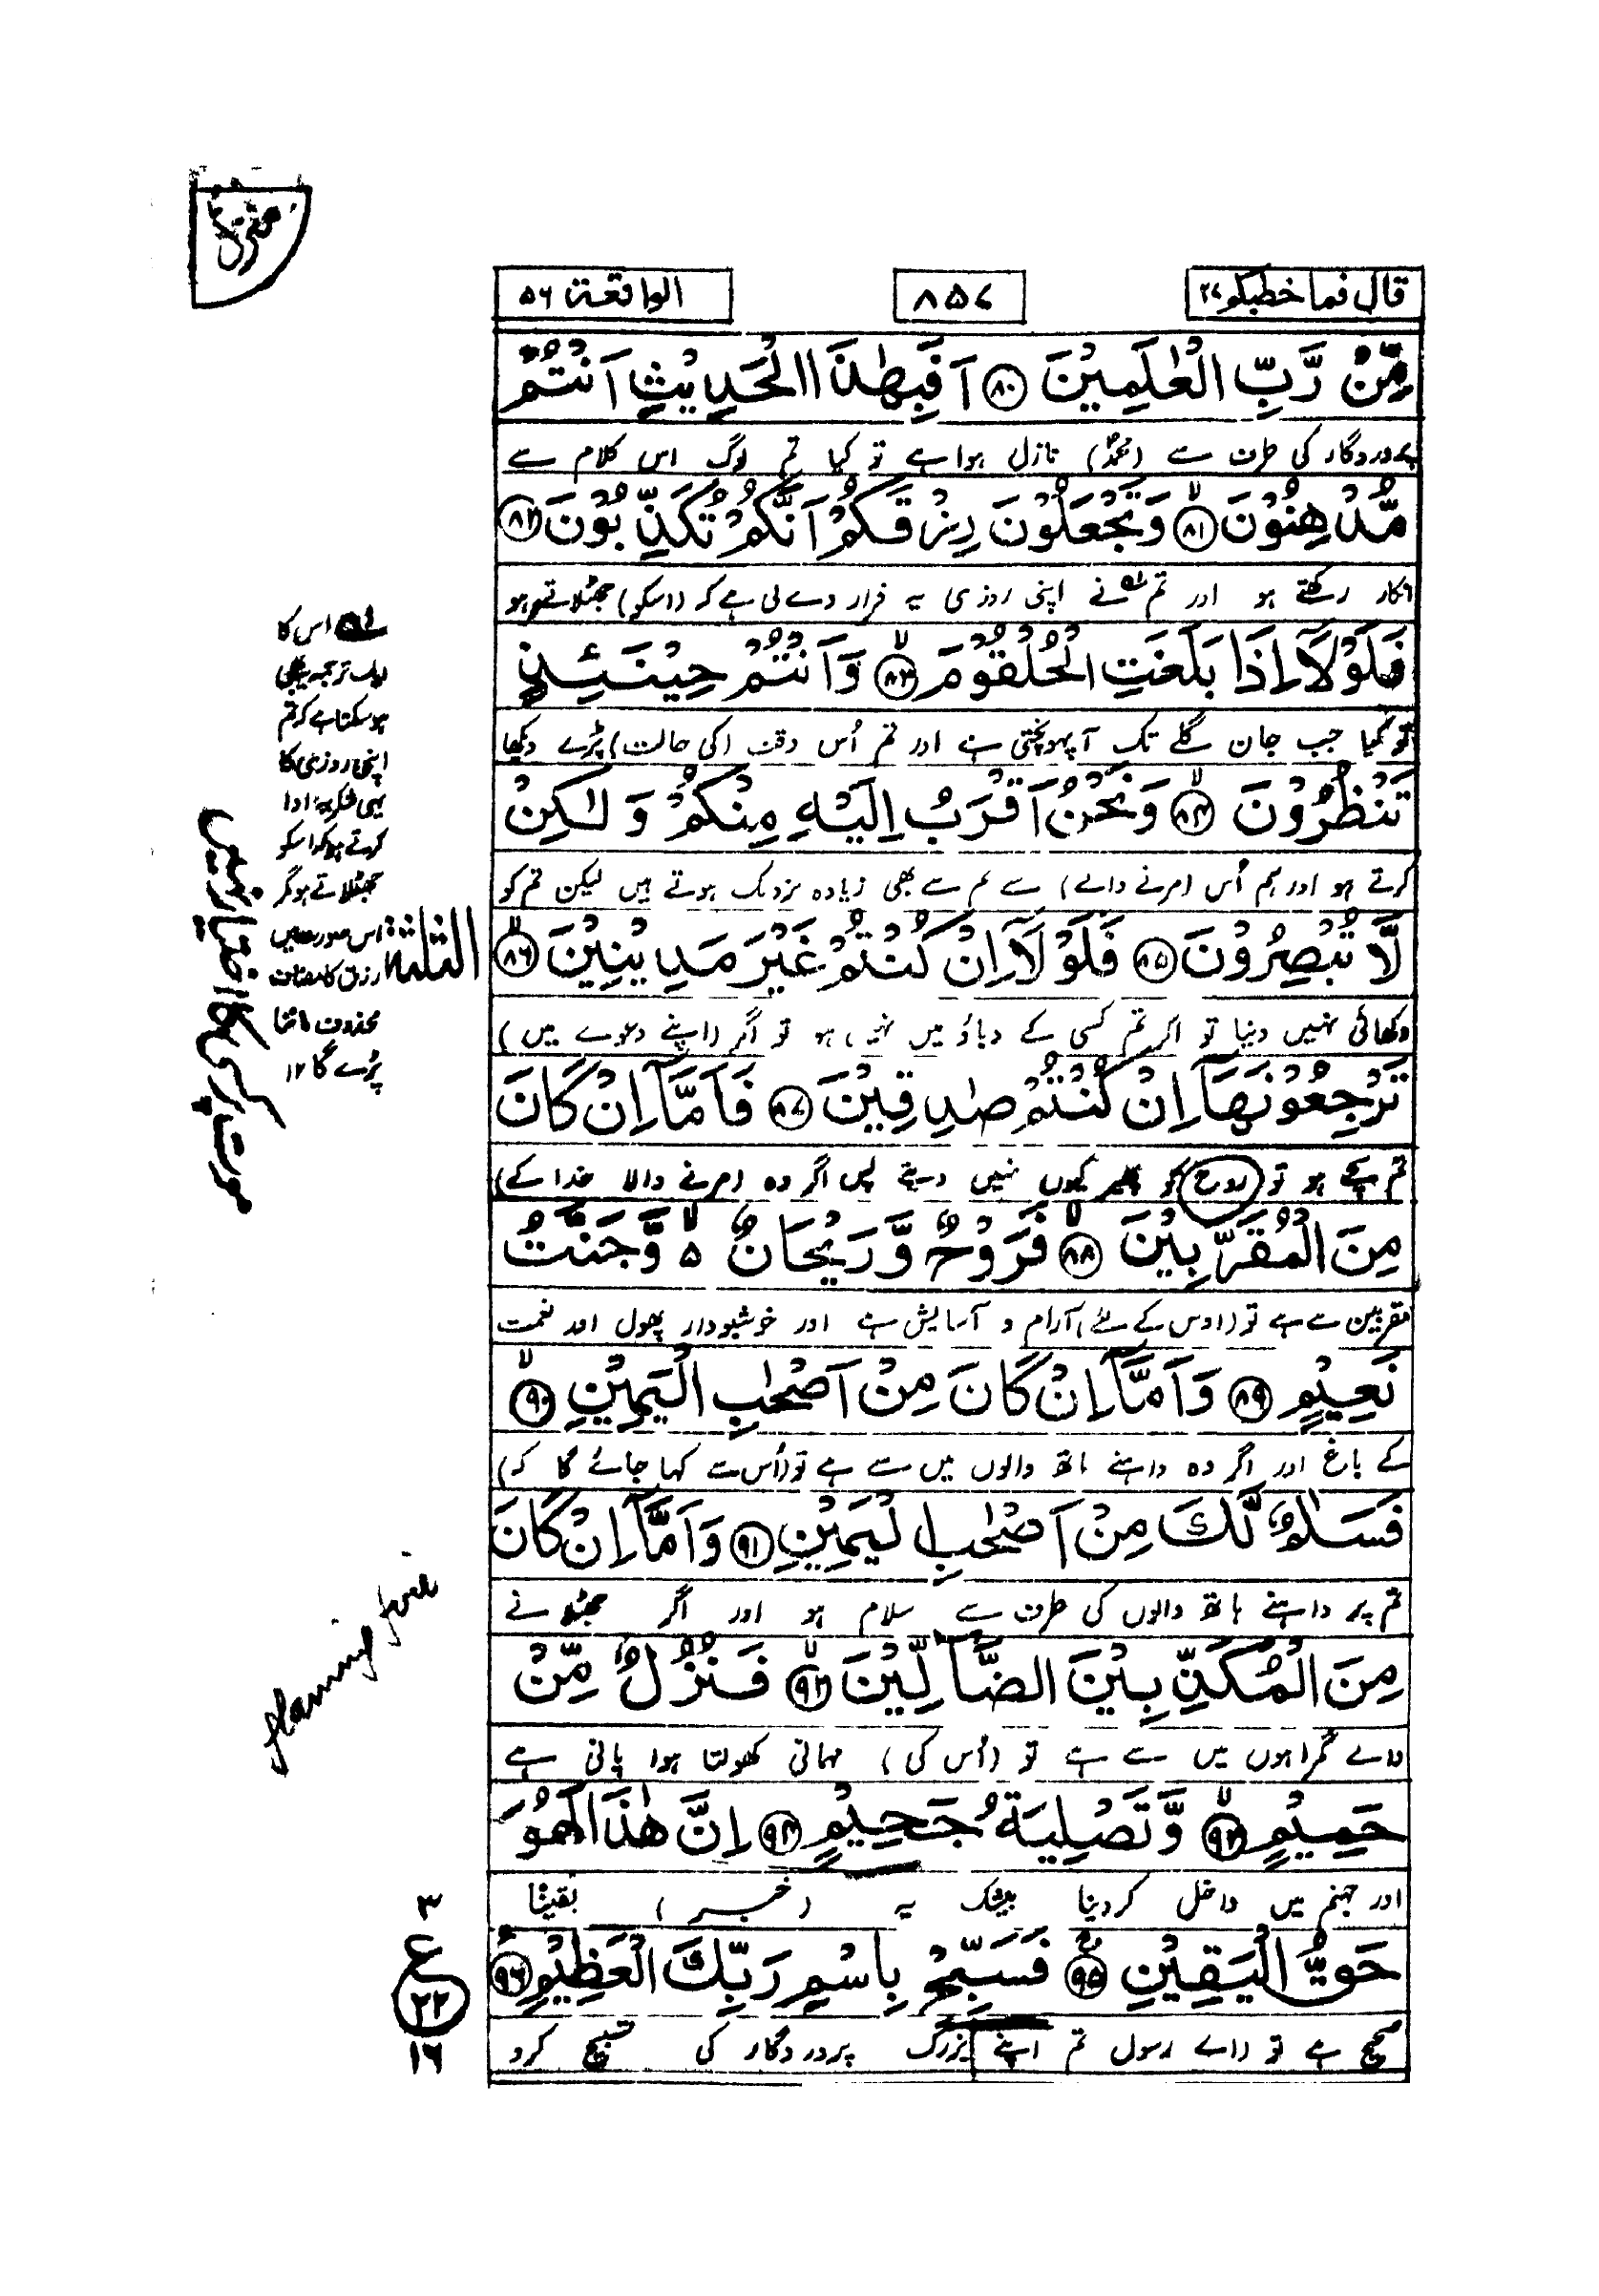 منزل
قال فما خطبکم ۲۷
۸۵۷
الواقعة ۵۶
مِّنْ رَّبِّ الْعٰلَمِيْنَ ۸۰ اَفَبِهٰذَا الْحَدِيْثِ اَنْتُمْ
پروردگار کی طرف سے (محمدؐ) نازل ہوا ہے تو کیا تم لوگ اس کلام سے
مُّدْهِنُوْنَ ۸۱ وَتَجْعَلُوْنَ رِزْقَكُمْ اَنَّكُمْ تُكَذِّبُوْنَ ۸۲
انکار رکھتے ہو اور تم نے اپنی روزی یہ قرار دے لی ہے کہ (اسکو) جھٹلاتے ہو
فَلَوْلَاۤ اِذَا بَلَغَتِ الْحُلْقُوْمَ ۸۳ وَاَنْتُمْ حِيْنَئِذٍ
تو کیا جب جان گلے تک آپہونچتی ہے اور تم اُس وقت (کی حالت) پڑے دیکھا
تَنْظُرُوْنَ ۸۴ وَنَحْنُ اَقْرَبُ اِلَيْهِ مِنْكُمْ وَلٰكِنْ
کرتے ہو اور ہم اُس (مرنے والے) سے تم سے بھی زیادہ نزدیک ہوتے ہیں لیکن تم کو
لَّا تُبْصِرُوْنَ ۸۵ فَلَوْلَاۤ اِنْ كُنْتُمْ غَيْرَ مَدِيْنِيْنَ ۸۶
دکھائی نہیں دیتا تو اگر تم کسی کے دباؤ میں نہیں ہو تو اگر (اپنے دعوے میں)
تَرْجِعُوْنَهَاۤ اِنْ كُنْتُمْ صٰدِقِيْنَ ۸۷ فَاَمَّاۤ اِنْ كَانَ
تم سچے ہو تو روح کو پھیر کیوں نہیں دیتے پس اگر وہ (مرنے والا خدا کے)
مِنَ الْمُقَرَّبِيْنَ ۸۸ فَرَوْحٌ وَّرَيْحَانٌ ۵ وَّجَنَّتُ
مقربین سے ہے تو (اوس کے لئے) آرام و آسایش ہے اور خوشبودار پھول اور نعمت
نَعِيْمٍ ۸۹ وَاَمَّاۤ اِنْ كَانَ مِنْ اَصْحٰبِ الْيَمِيْنِ ۹۰
کے باغ اور اگر وہ داہنے ہاتھ والوں میں سے ہے تو (اُس سے کہا جائے گا کہ)
فَسَلٰمٌ لَّكَ مِنْ اَصْحٰبِ الْيَمِيْنِ ۹۱ وَاَمَّاۤ اِنْ كَانَ
تم پر داہنے ہاتھ والوں کی طرف سے سلام ہو اور اگر جھٹلانے
مِنَ الْمُكَذِّبِيْنَ الضَّاۤلِّيْنَ ۹۲ فَنُزُلٌ مِّنْ
والے گمراہوں میں سے ہے تو (اُس کی) مہمانی کھولتا ہوا پانی ہے
حَمِيْمٍ ۹۳ وَّتَصْلِيَةُ جَحِيْمٍ ۹۴ اِنَّ هٰذَا لَهُوَ
اور جہنم میں داخل کردینا بیشک یہ (خبر) یقینًا
حَقُّ الْيَقِيْنِ ۹۵ فَسَبِّحْ بِاسْمِ رَبِّكَ الْعَظِيْمِ ۹۶
صحیح ہے تو (اے رسول تم اپنے بزرگ پروردگار کی تسبیح کرو
اس کا
ایک ترجمہ یہ بھی
ہو سکتا ہے کہ تم
اپنی روزی کا
یہی شکریہ ادا
کرتے ہو کہ اسکو
جھٹلاتے ہو مگر
اس صورت میں
رزق کا مضاف
محذوف ماننا
پڑے گا ۱۲
الثلثة
موت پر کسی کا اختیار نہیں
flaming fire
۳
ع
۲۲
۱۶